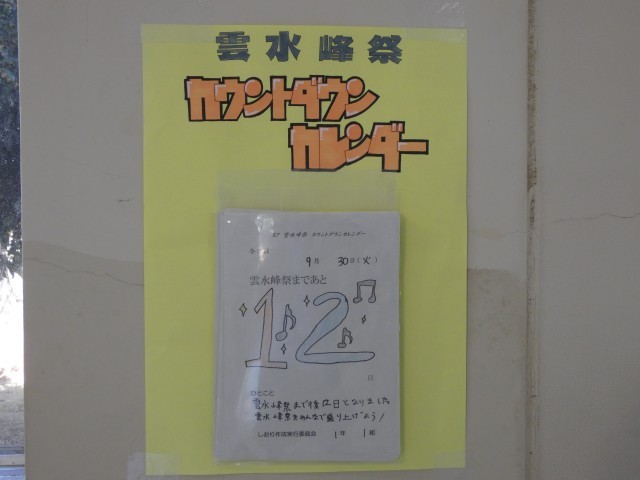 雲水峰祭
カウントダウン
カレンダー
雲水峰祭 カウントダウンカレンダー
9月 30日(火)
雲水峰祭まであと
12
日
ひとこと
雲水峰祭まで後12日となりました
雲水峰祭をみんなで盛り上げよう!
しおり作成実行委員会 1年 1組